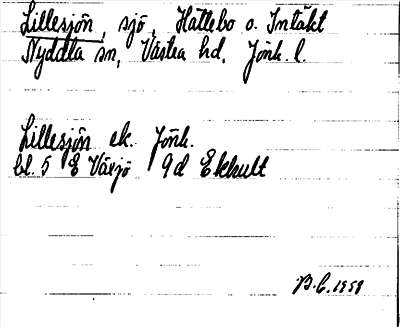 Lillesjön, sjö, Hattebo o. Intäkt
Nydala sn, Västra hd, Jönk. l.
Lillesjön ek. Jönk.
bl. 5 E Växjö 9d Ekhult
B.C. 1958